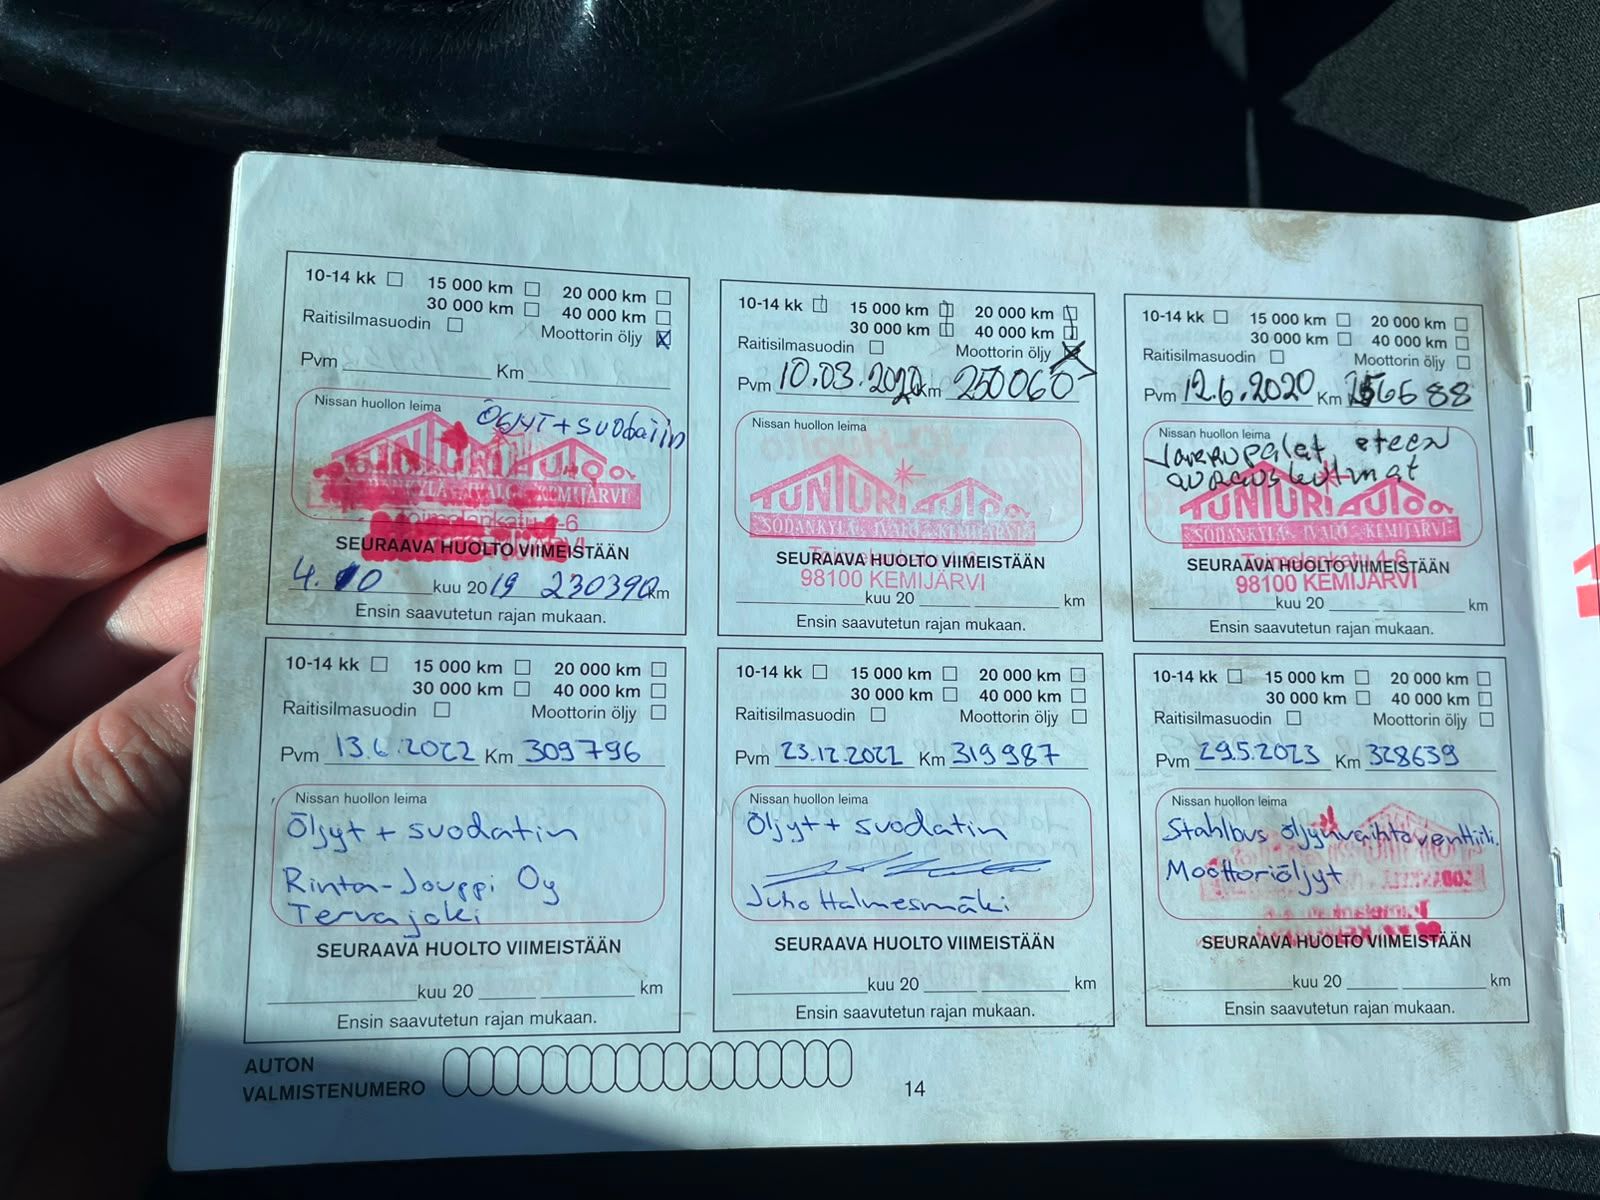 10-14 kk 15 000 km 20 000 km
30 000 km 40 000 km
Raitisilmasuodin Moottorin öljy
Pvm Km
Nissan huollon leima
Öljyt + suodatin
TUNTURI Autoa
SODANKYLÄ - IVALO - KEMIJÄRVI
Toimelankatu 4-6
SEURAAVA HUOLTO VIIMEISTÄÄN
4.10 kuu 2019 230390 km
Ensin saavutetun rajan mukaan.
10-14 kk 15 000 km 20 000 km
30 000 km 40 000 km
Raitisilmasuodin Moottorin öljy
Pvm 10.03.2020 Km 250060
Nissan huollon leima
TUNTURI Autoa
SODANKYLÄ - IVALO - KEMIJÄRVI
SEURAAVA HUOLTO VIIMEISTÄÄN
Toimelankatu 4-6
98100 KEMIJÄRVI
kuu 20 km
Ensin saavutetun rajan mukaan.
10-14 kk 15 000 km 20 000 km
30 000 km 40 000 km
Raitisilmasuodin Moottorin öljy
Pvm 12.6.2020 Km 256688
Nissan huollon leima
Jarrupalat eteen
TUNTURI Autoa
SODANKYLÄ - IVALO - KEMIJÄRVI
Toimelankatu 4-6
SEURAAVA HUOLTO VIIMEISTÄÄN
98100 KEMIJÄRVI
kuu 20 km
Ensin saavutetun rajan mukaan.
10-14 kk 15 000 km 20 000 km
30 000 km 40 000 km
Raitisilmasuodin Moottorin öljy
Pvm 13.6.2022 Km 309796
Nissan huollon leima
Öljyt + suodatin
Rinta-Jouppi Oy
Tervajoki
SEURAAVA HUOLTO VIIMEISTÄÄN
kuu 20 km
Ensin saavutetun rajan mukaan.
10-14 kk 15 000 km 20 000 km
30 000 km 40 000 km
Raitisilmasuodin Moottorin öljy
Pvm 23.12.2022 Km 319987
Nissan huollon leima
Öljyt + suodatin
Juho Halmesmäki
SEURAAVA HUOLTO VIIMEISTÄÄN
kuu 20 km
Ensin saavutetun rajan mukaan.
10-14 kk 15 000 km 20 000 km
30 000 km 40 000 km
Raitisilmasuodin Moottorin öljy
Pvm 29.5.2023 Km 328639
Nissan huollon leima
Stahlbus öljynvaihtoventtiili.
Moottoriöljyt
SEURAAVA HUOLTO VIIMEISTÄÄN
kuu 20 km
Ensin saavutetun rajan mukaan.
AUTON
VALMISTENUMERO
14